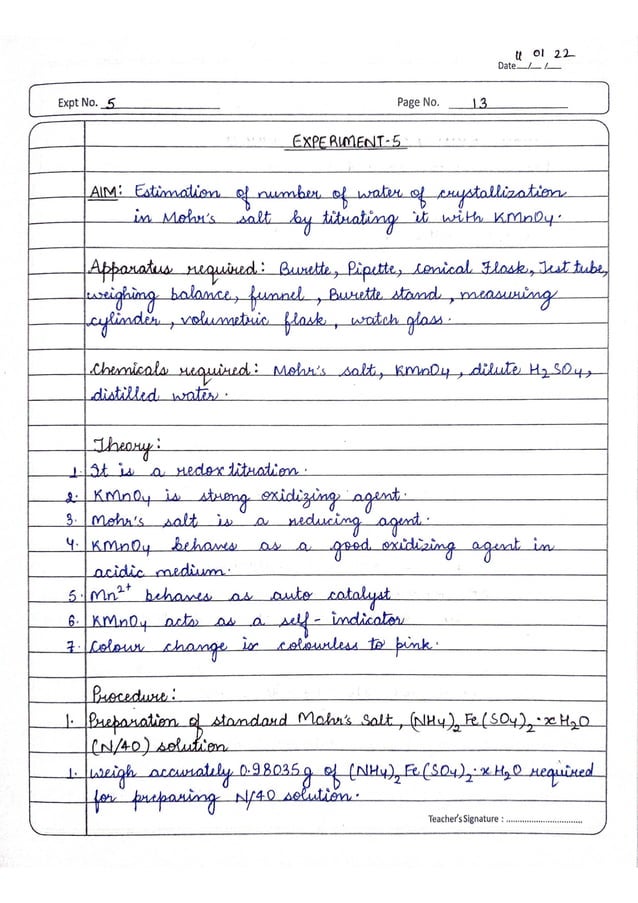 11 01 22
Date __/__/__
Expt No. 5
Page No. 13
EXPERIMENT-5
AIM: Estimation of number of water of crystallization
in Mohr's salt by titrating it with KMnO4.
Apparatus required: Burette, Pipette, conical Flask, Test tube,
weighing balance, funnel, Burette stand, measuring
cylinder, volumetric flask, watch glass.
Chemicals required: Mohr's salt, KMnO4, dilute H2SO4,
distilled water.
Theory:
1. It is a redox titration.
2. KMnO4 is strong oxidizing agent.
3. Mohr's salt is a reducing agent.
4. KMnO4 behaves as a good oxidizing agent in
acidic medium.
5. Mn2+ behaves as auto catalyst
6. KMnO4 acts as a self-indicator
7. Colour change is colourless to pink.
Procedure:
1. Preparation of standard Mohr's Salt, (NH4)2 Fe(SO4)2·xH2O
(N/40) solution
1. Weigh accurately 0.98035g of (NH4)2 Fe(SO4)2·xH2O required
for preparing N/40 solution.
Teacher's Signature : ................................